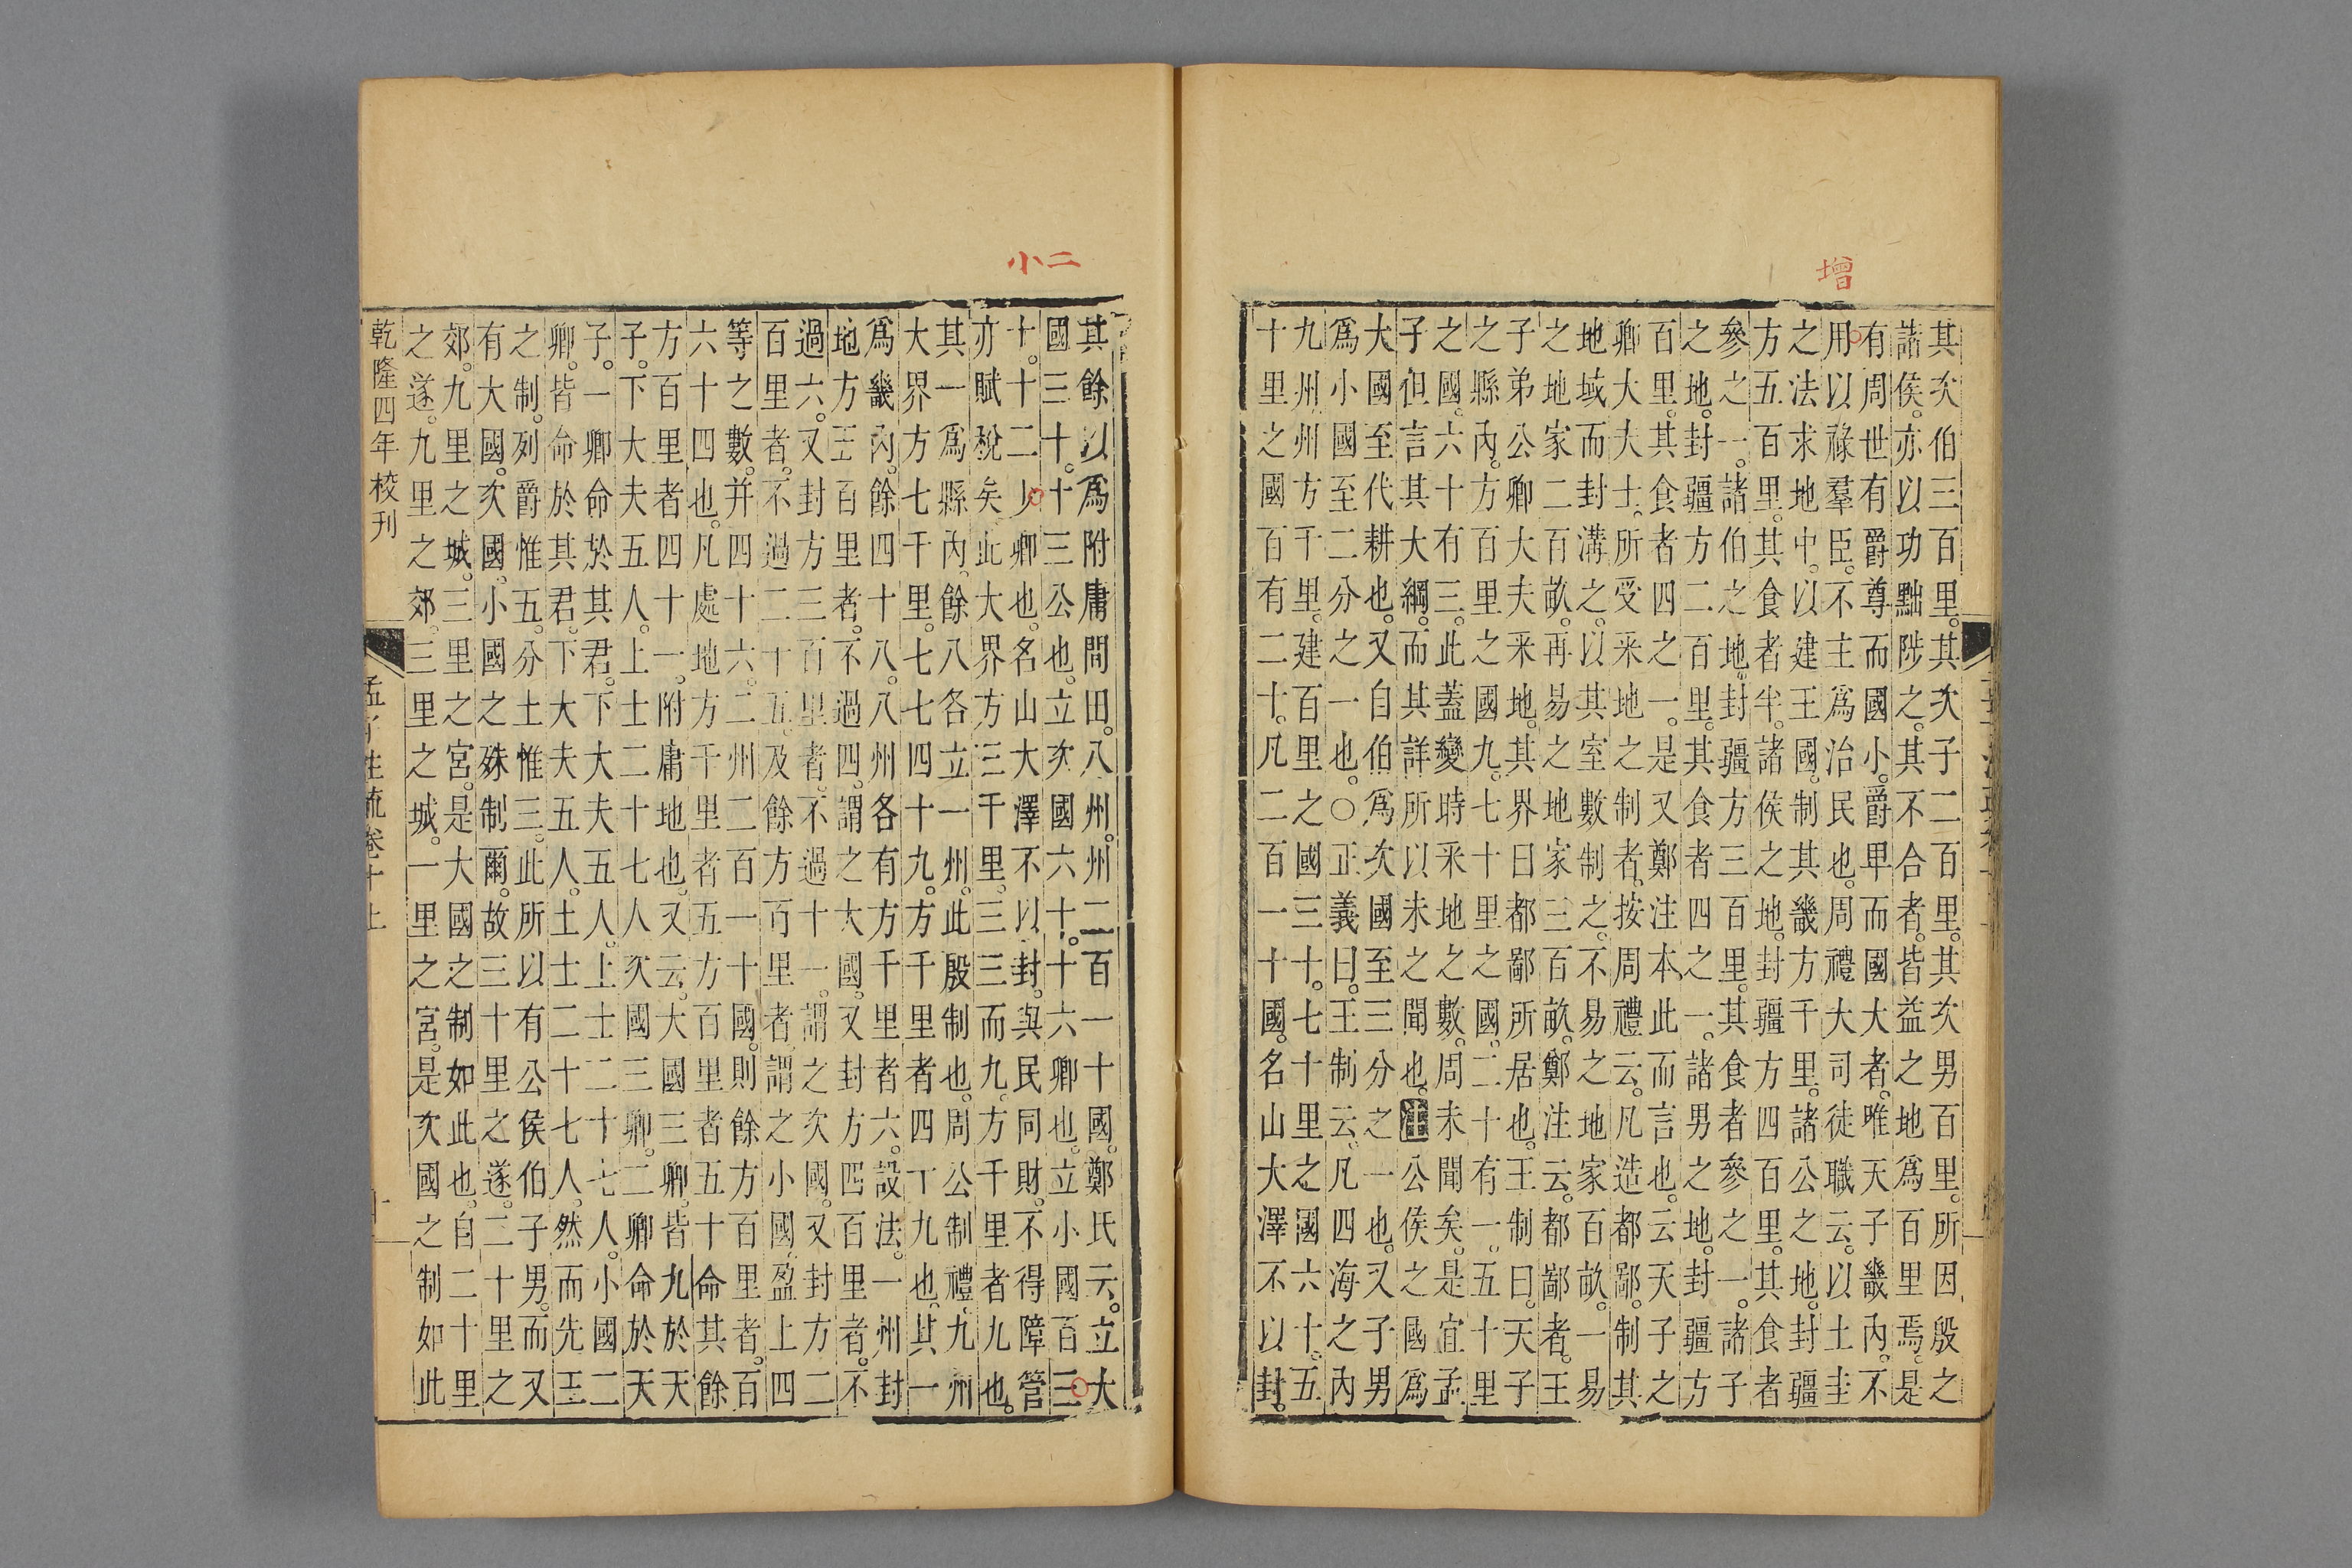 增
其次伯三百里。其次子二百里。其次男百里。所因殷之
諸侯。亦以功黜陟之。其不合者。皆益之地爲百里焉。是
有周世有爵尊而國小。爵卑而國大者。唯天子畿內。不
用以祿羣臣。不主爲治民也。周禮大司徒職云。以土圭
之法求地中。以建王國。制其畿方千里。諸公之地。封疆
方五百里。其食者半。諸侯之地。封疆方四百里。其食者
參之一。諸伯之地。封疆方三百里。其食者參之一。諸子
之地。封疆方二百里。其食者四之一。諸男之地。封疆方
百里。其食者四之一。是又鄭注本此而言也。云天子之
卿大夫士。所受采地之制者。按周禮云。凡造都鄙。制其
地域而封溝之。以其室數制之。不易之地家百畝。一易
之地家二百畝。再易之地家三百畝。鄭注云。都鄙者。王
子弟公卿大夫采地。其界曰都鄙。所居也。王制曰。天子
之縣內。方百里之國九。七十里之國。二十有一。五十里
之國。六十有三。此蓋夔時采地之數。周未聞矣。是宜孟
子但言其大綱。而其詳所以未之聞也。注公侯之國爲
大國至代耕也。又自伯爲次國至三分之一也。又子男
爲小國至二分之一也。○正義曰。王制云。凡四海之內
九州。州方千里。建百里之國三十。七十里之國六十。五
十里之國百有二十。凡二百一十國。名山大澤不以封。
小二
其餘以爲附庸間田。八州。州二百一十國。鄭氏云。立大
國三十。十三公也。立次國六十。十六卿也。立小國百三
十。十二小卿也。名山大澤不以封。與民同財。不得障管
亦賦稅矣。此大界方三千里。三三而九。方千里者九也。
其一爲縣內。餘八各立一州。此殷制也。周公制禮。九州
大界方七千里。七七四十九。方千里者四丁九也。其一
爲畿內。餘四十八。八州各有方千里者六。設法。一州封
地方王百里者。不過四。謂之大國。又封方四百里者。不
過六。又封方三百里者。不過十一。謂之次國。又封方二
百里者。不過二十五。及餘方百里者。謂之小國。盈上四
等之數。并四十六。二州二百一十國。則餘方百里者。百
六十四也。凡處地方千里者五。方百里者五十。其餘
方百里者四十一。附庸地也。又云。大國三卿。皆命於天
子。下大夫五人。上士二十七人。次國三卿。二卿命於天
子。一卿命於其君。下大夫五人。上士二十七人。小國二
卿。皆命於其君。下大夫五人。士士二十七人。然而先王
之制。列爵惟五。分土惟三。此所以有公侯伯子男。而又
有大國。次國。小國之殊制爾。故三十里之遂。二十里之
郊。九里之城。三里之宮。是大國之制如此也。自二十里
之遂。九里之郊。三里之城。一里之宮。是次國之制如此
乾隆四年校刊
孟子注疏卷十上